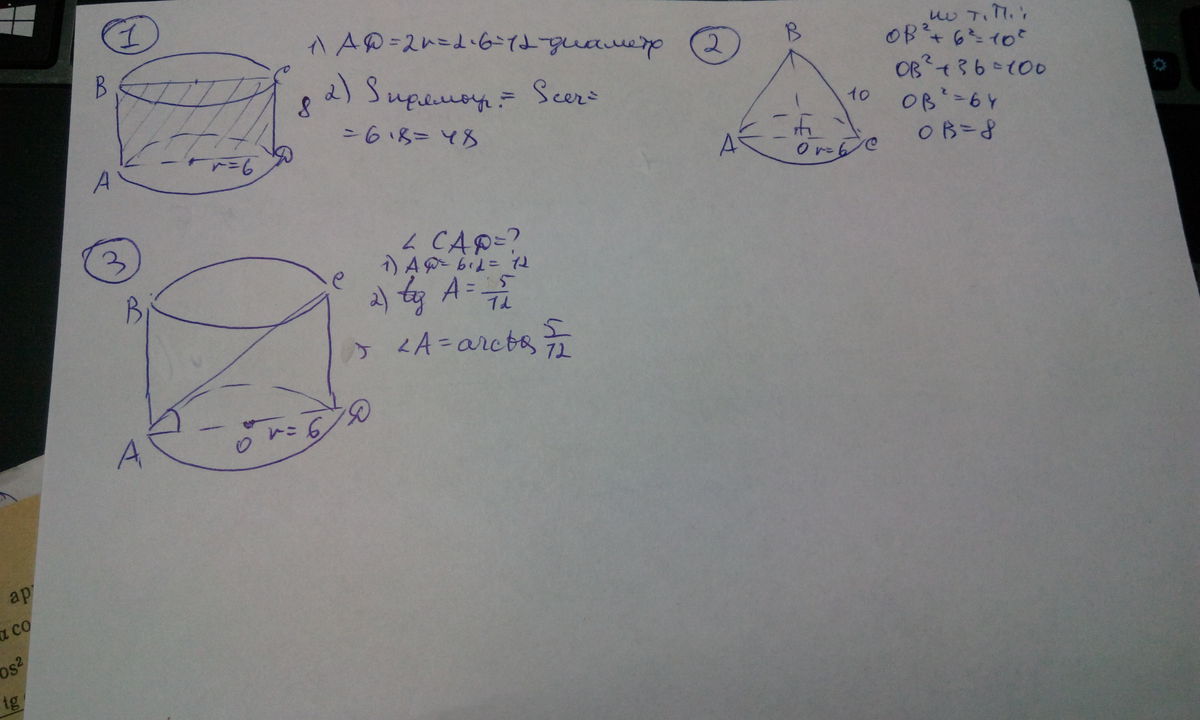 1
B
C
A
D
r=6
8
1) AD=2r=2·6=12-диаметр
2) Sпрямоуг.= Sсеч=
=6·8=48
2
B
A
O
r=6
C
10
по т.П.:
OB²+6²=10²
OB²+36=100
OB²=64
OB=8
3
B
C
A
O
r=6
D
5
∠ CAD=?
1) AD=6·2=12
2) tg A= 5/12
∠A=arctg 5/12
ар
а со
os²
tg